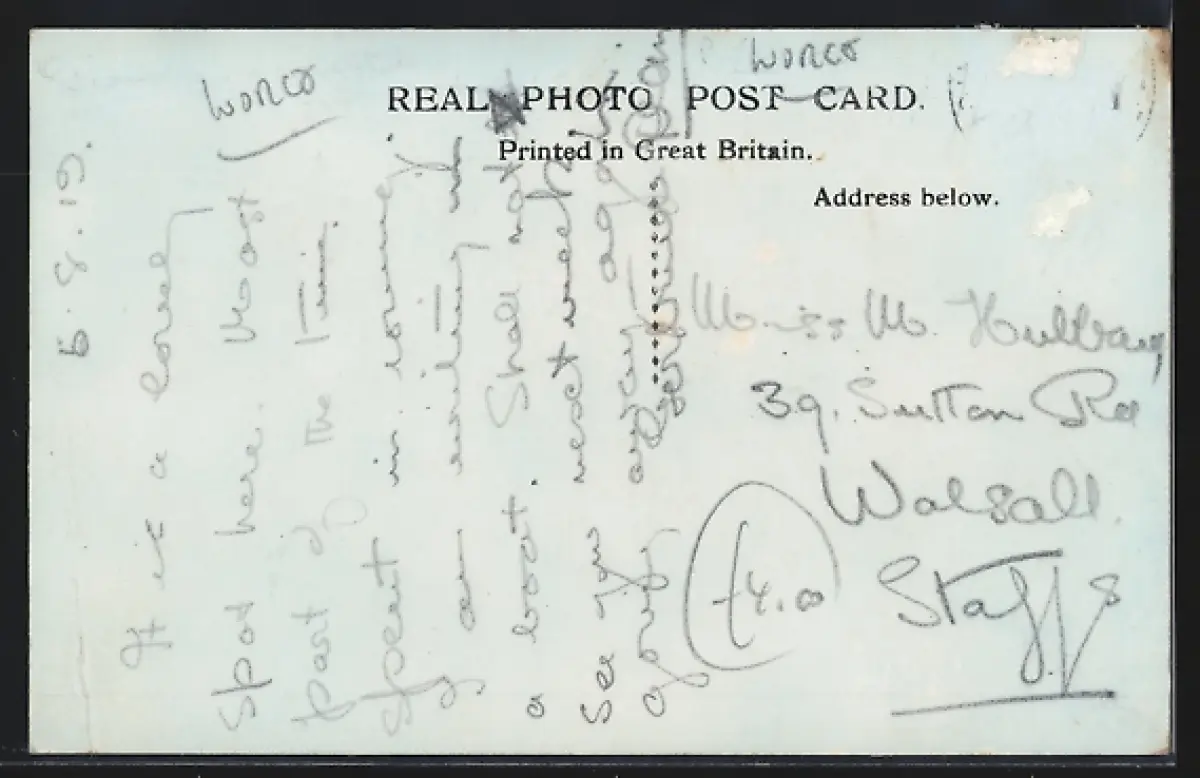 WORCS
WORCS
REAL PHOTO POST CARD.
Printed in Great Britain.
Address below.
6.8.19.
It is a lovely
spot here. Most
part of the time
spent in rowing.
am writing in
a boat. Shall not
see you next week
again
Miss M.
39. Sutton Rd
Walsall.
Staffs
£4.00